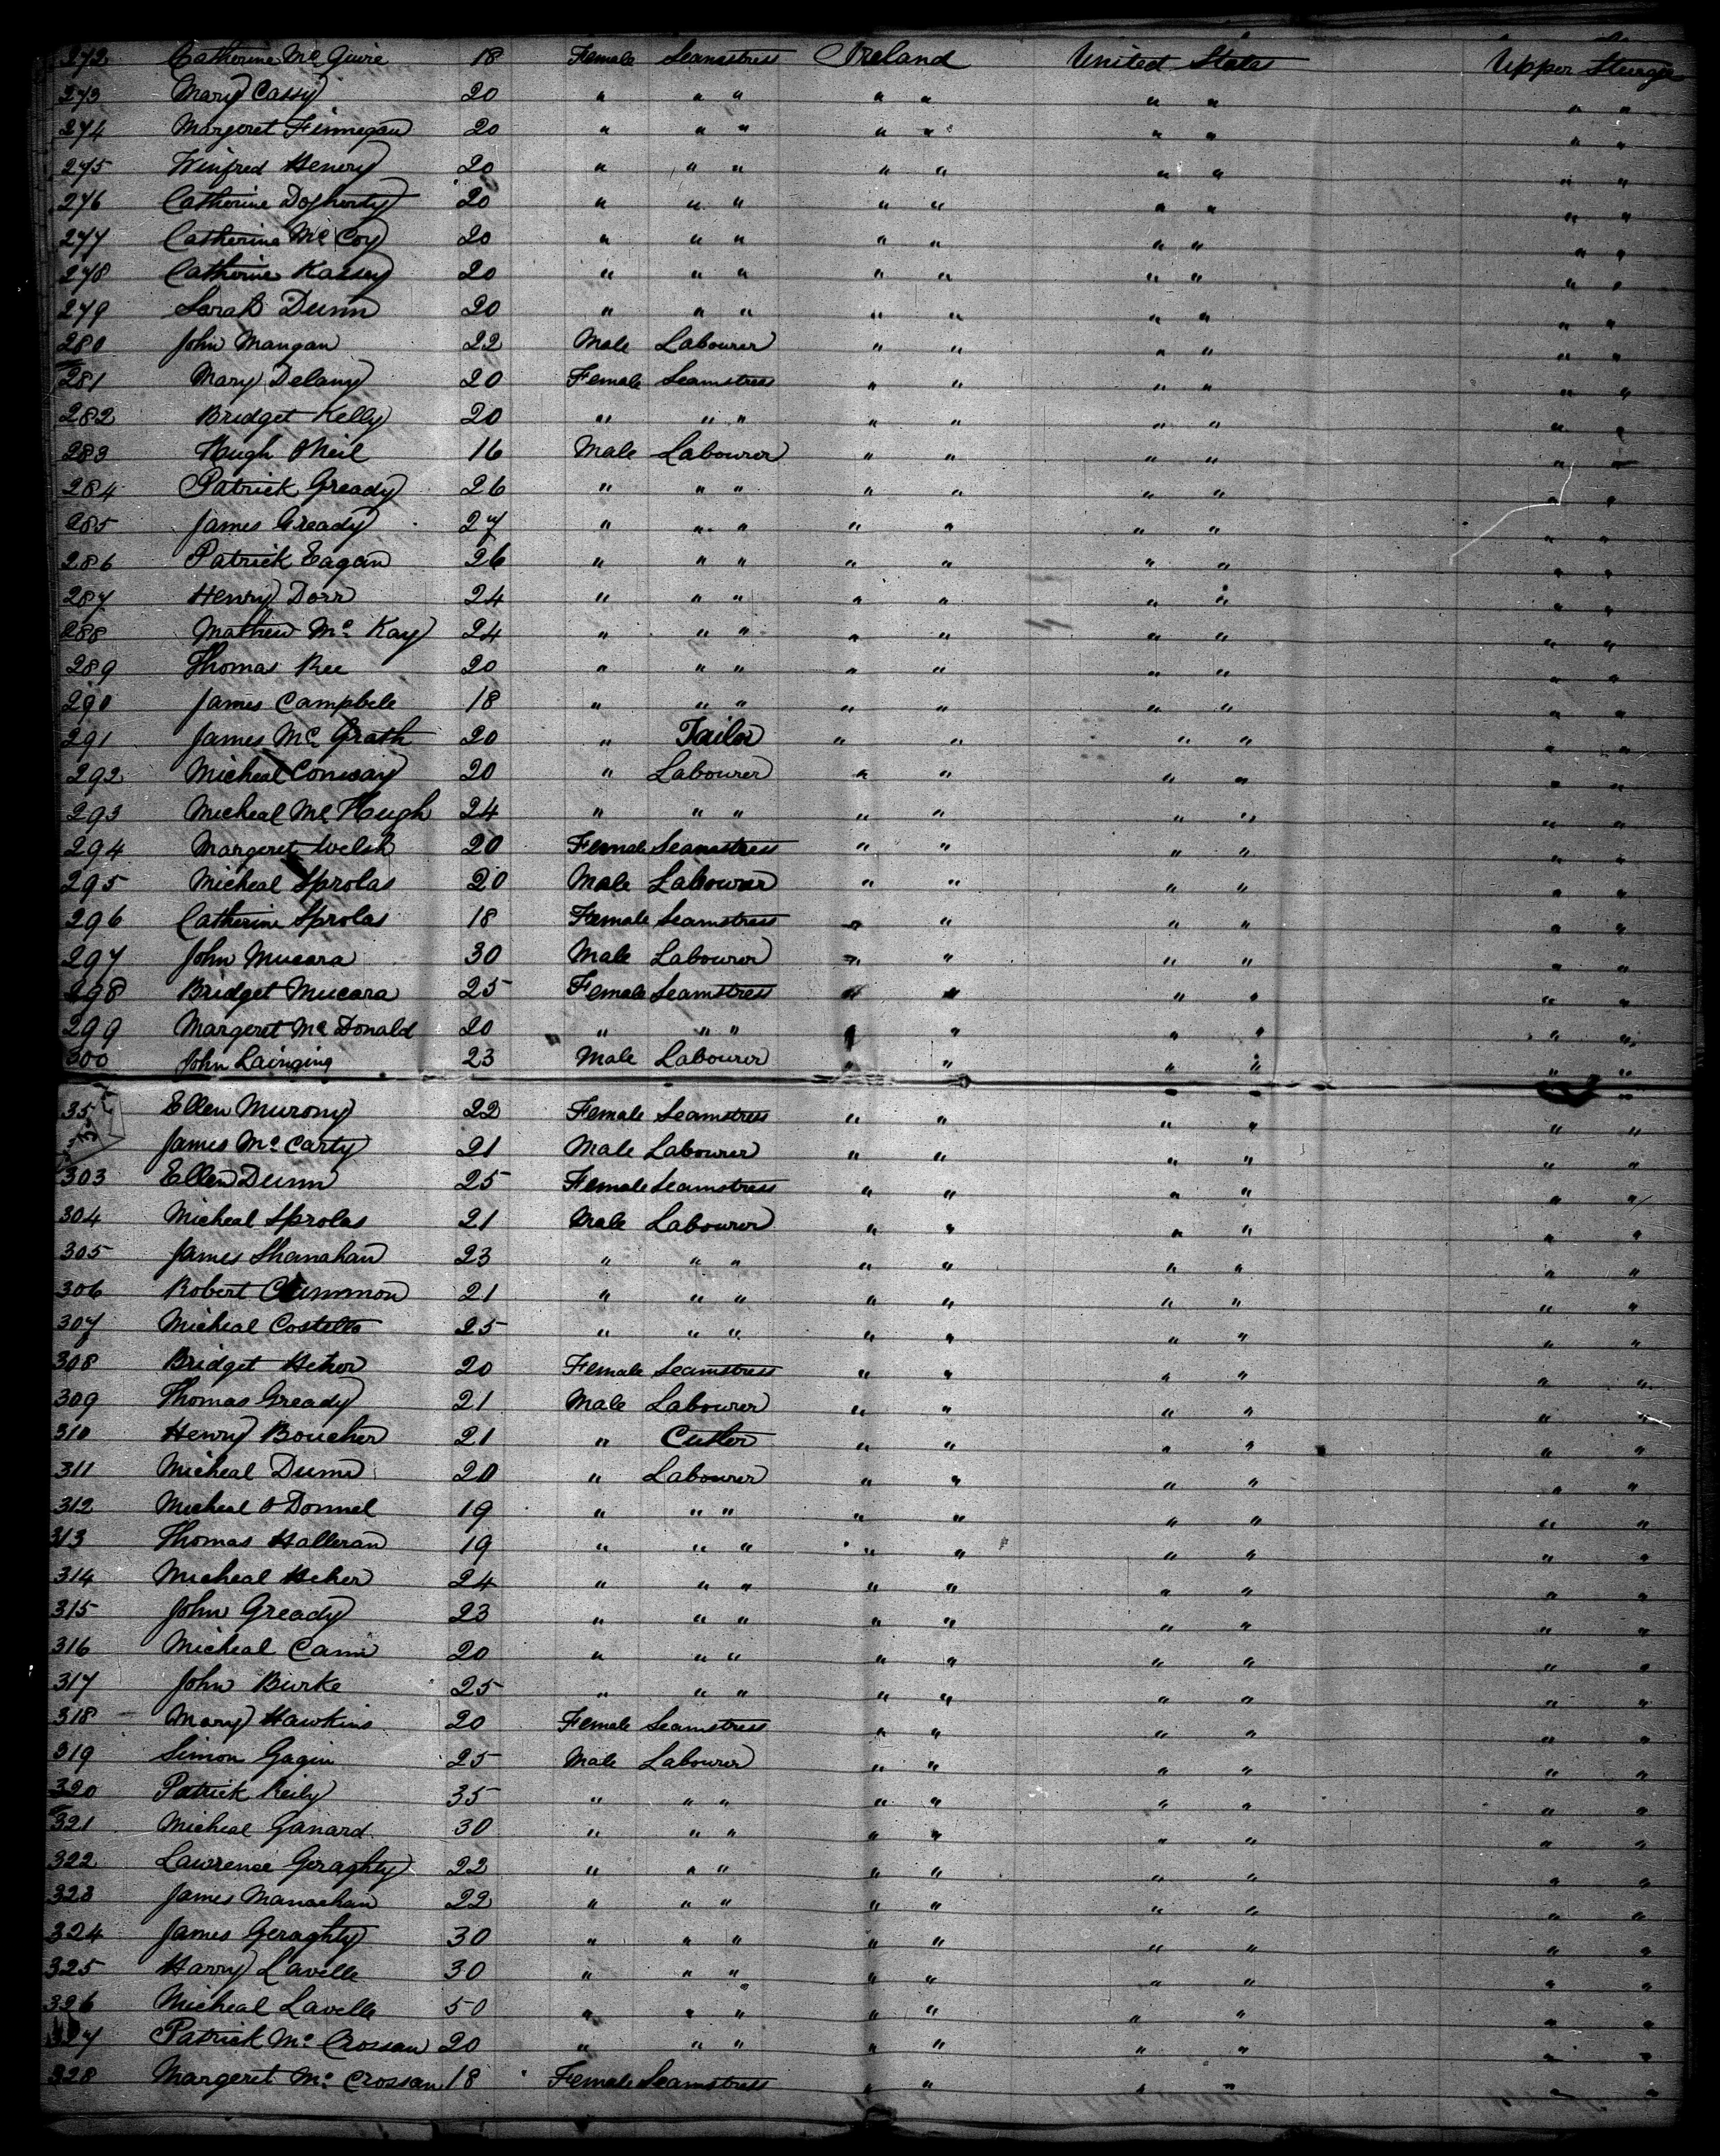 272 Catherine Mc Guire 18 Female Seamstress Ireland United States Upper
273 Mary Cassy 20 " " " " " " " " "
274 Margeret Finnegan 20 " " " " " " " " "
275 Winfred Henery 20 " " " " " " " " "
276 Catherine Dogherty 20 " " " " " " " " "
277 Catherine Mc Coy 20 " " " " " " " " "
278 Catherine Kassey 20 " " " " " " " " "
279 Sarah Dunn 20 " " " " " " " " "
280 John Mangan 22 Male Labourer " " " " " "
281 Mary Delany 20 Female Seamstress " " " " " "
282 Bridget Kelly 20 " " " " " " " " "
283 Hugh ONeil 16 Male Labourer " " " " " "
284 Patrick Gready 26 " " " " " " " " "
285 James Gready 27 " " " " " " " " "
286 Patrick Eagan 26 " " " " " " " " "
287 Henry Dorr 24 " " " " " " " " "
288 Mathew Mc Kay 24 " " " " " " " " "
289 Thomas 20 " " " " " " " " "
290 James Campbele 18 " " " " " " " " "
291 James Mc Grath 20 " Tailor " " " " " "
292 Micheal Conway 20 " Labourer " " " " " "
293 Micheal Mc Hugh 24 " " " " " " " " "
294 Margeret Welsh 20 Female Seamstress " " " " " "
295 Micheal Sprolas 20 Male Labourer " " " " " "
296 Catherine Sprolas 18 Female Seamstress " " " " " "
297 John Mucara 30 Male Labourer " " " " " "
298 Bridget Mucara 25 Female Seamstress " " " " " "
299 Margeret Mc Donald 20 " " " " " " " " "
300 John Lainging 23 Male Labourer " " " " " "
Ellen Murony 22 Female Seamstress " " " " " "
James Mc Carty 21 Male Labourer " " " " " "
303 Ellen Dunn 25 Female Seamstress " " " " " "
304 Micheal Sprolas 21 Male Labourer " " " " " "
305 James Shanahan 23 " " " " " " " " "
306 Robert Crimmon 21 " " " " " " " " "
307 Micheal Costello 25 " " " " " " " " "
308 Bridget Heher 20 Female Seamstress " " " " " "
309 Thomas Gready 21 Male Labourer " " " " " "
310 Henry Boucher 21 " Cutler " " " " " "
311 Micheal Dunn 20 " Labourer " " " " " "
312 Micheal O Donnel 19 " " " " " " " " "
313 Thomas Halleran 19 " " " " " " " " "
314 Micheal Heher 24 " " " " " " " " "
315 John Gready 23 " " " " " " " " "
316 Micheal Cann 20 " " " " " " " " "
317 John Burke 25 " " " " " " " " "
318 Mary Hawkins 20 Female Seamstress " " " " " "
319 Simon Gagin 25 Male Labourer " " " " " "
320 Patrick Reily 35 " " " " " " " " "
321 Micheal Ganard 30 " " " " " " " " "
322 Lawrence Geraghty 22 " " " " " " " " "
323 James Manachan 22 " " " " " " " " "
324 James Geraghty 30 " " " " " " " " "
325 Harry Lavelle 30 " " " " " " " " "
326 Micheal Lavelle 50 " " " " " " " " "
327 Patrick Mc Crossan 20 " " " " " " " " "
328 Margeret Mc Crossan 18 Female Seamstress " " " " " "